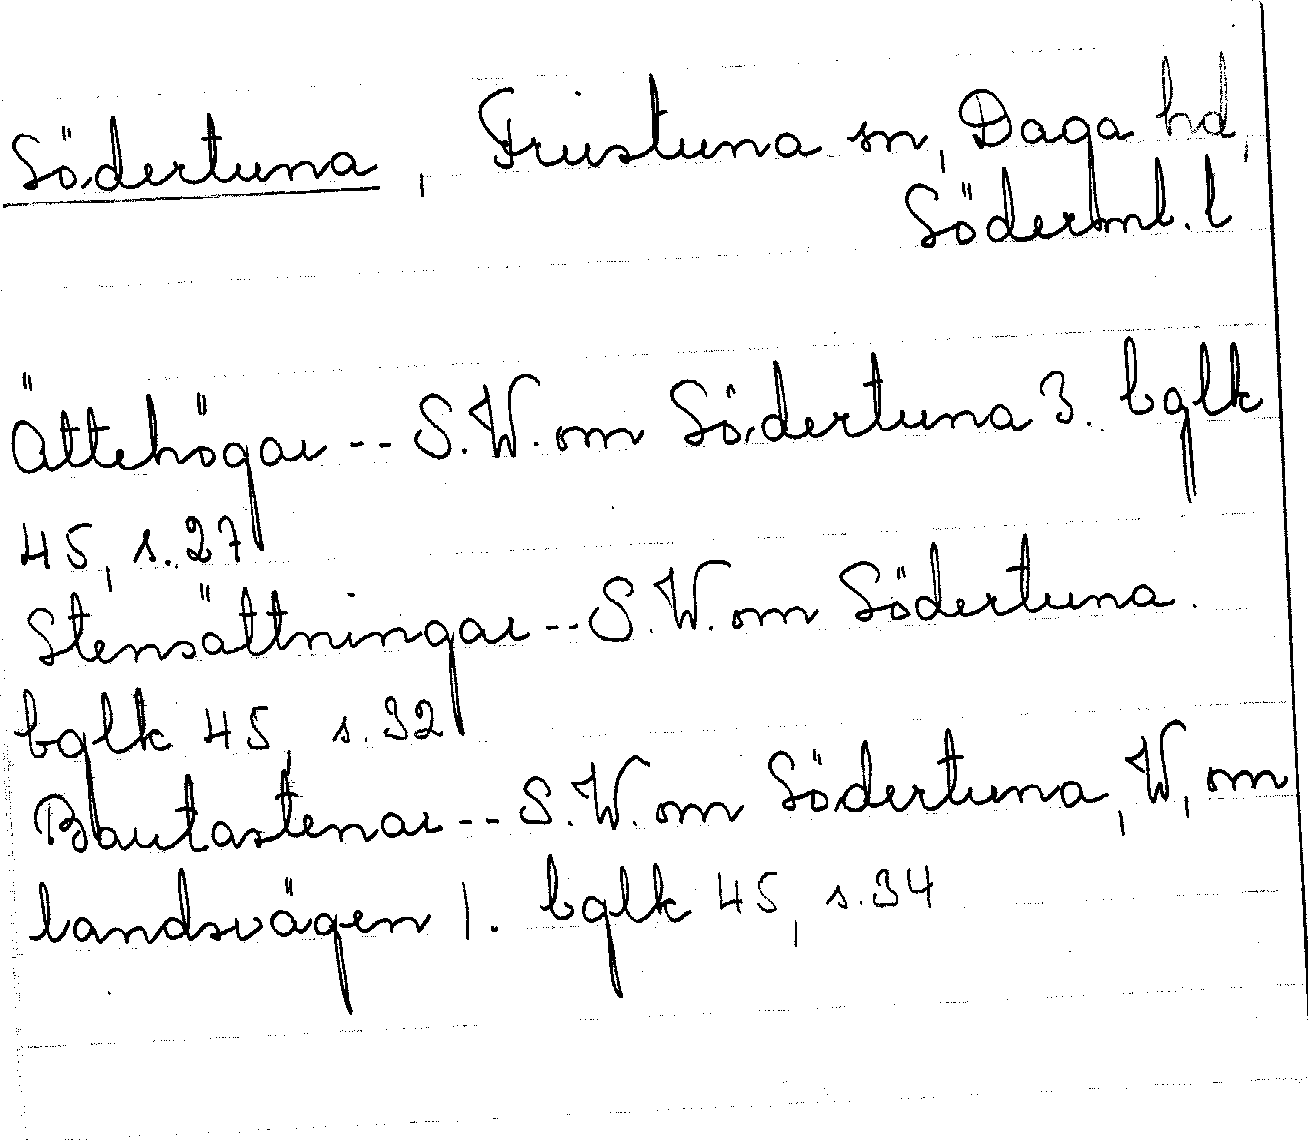 Södertuna, Frustuna sn, Daga hd,
Söderml. l
Ättehögar -- S.W. om Södertuna 3. bglk
45, s. 27
Stensättningar -- S.W. om Södertuna.
bglk 45, s. 32
Bautastenar -- S.W. om Södertuna, W, om
landsvägen 1. bglk 45, s. 34